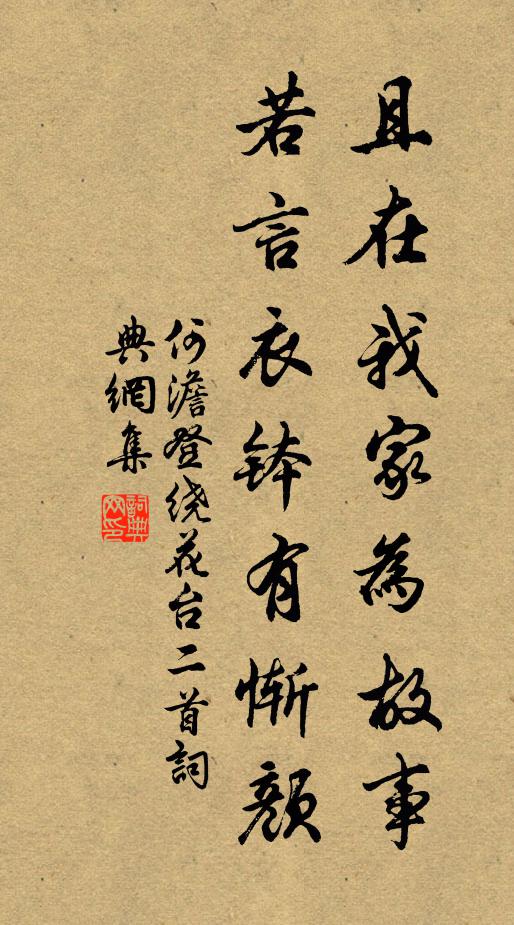 且在我家為故事
若言衣鉢有慚顏
何澹登绕花台二首詞
典網集
詞典
网印